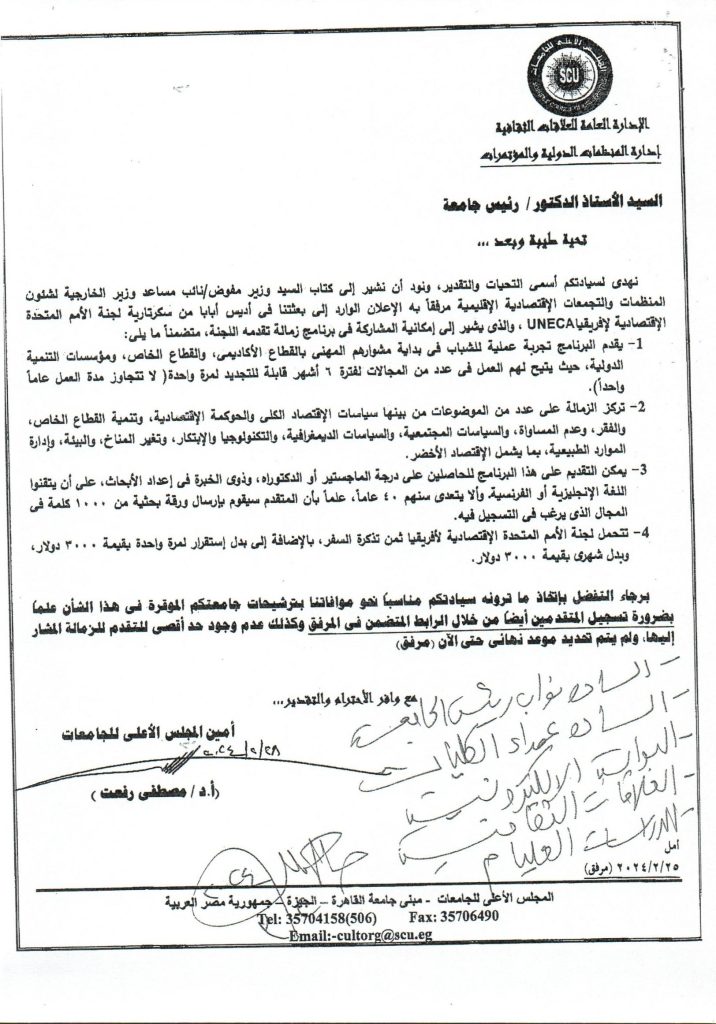 المجلس الأعلى للجامعات
SCU
الإدارة العامة للعلاقات الثقافية
إدارة المنظمات الدولية والمؤتمرات
السيد الأستاذ الدكتور/ رئيس جامعة
تحية طيبة وبعد ...
نهدى لسيادتكم أسمى التحيات والتقدير، ونود أن نشير إلى كتاب السيد وزير مفوض/نائب مساعد وزير الخارجية لشئون
المنظمات والتجمعات الإقتصادية الإقليمية مرفقاً به الإعلان الوارد إلى بعثتنا فى أديس أبابا من سكرتارية لجنة الأمم المتحدة
الإقتصادية لإفريقيا UNECA ، والذى يشير إلى إمكانية المشاركة فى برنامج زمالة تقدمه اللجنة، متضمناً ما يلى:
1- يقدم البرنامج تجربة عملية للشباب فى بداية مشوارهم المهنى بالقطاع الأكاديمى، والقطاع الخاص، ومؤسسات التنمية
الدولية، حيث يتيح لهم العمل فى عدد من المجالات لفترة ٦ أشهر قابلة للتجديد لمرة واحدة( لا تتجاوز مدة العمل عاماً
واحداً).
2- تركز الزمالة على عدد من الموضوعات من بينها سياسات الإقتصاد الكلى والحوكمة الإقتصادية، وتنمية القطاع الخاص،
والفقر، وعدم المساواة، والسياسات المجتمعية، والسياسات الديمغرافية، والتكنولوجيا والإبتكار، وتغير المناخ، والبيئة، وإدارة
الموارد الطبيعية، بما يشمل الإقتصاد الأخضر.
3- يمكن التقديم على هذا البرنامج للحاصلين على درجة الماجستير أو الدكتوراه، وذوى الخبرة فى إعداد الأبحاث، على أن يتقنوا
اللغة الإنجليزية أو الفرنسية وألا يتعدى سنهم ٤٠ عاماً، علماً بأن المتقدم سيقوم بإرسال ورقة بحثية من ١٠٠٠ كلمة فى
المجال الذى يرغب فى التسجيل فيه.
4- تتحمل لجنة الأمم المتحدة الإقتصادية لأفريقيا ثمن تذكرة السفر، بالإضافة إلى بدل إستقرار لمرة واحدة بقيمة ٣٠٠٠ دولار،
وبدل شهرى بقيمة ٣٠٠٠ دولار.
برجاء التفضل بإتخاذ ما ترونه سيادتكم مناسباً نحو موافاتنا بترشيحات جامعتكم الموقرة فى هذا الشأن علماً
بضرورة تسجيل المتقدمين أيضاً من خلال الرابط المتضمن فى المرفق وكذلك عدم وجود حد أقصى للتقدم للزمالة المشار
إليها، ولم يتم تحديد موعد نهائى حتى الآن (مرفق)
مع وافر الأحترام والتقدير...
أمين المجلس الأعلى للجامعات
٢٠٢٤/٢/٢٨
(أ.د/ مصطفى رفعت )
- السادة نواب رئيس الجامعة
- السادة عمداء الكليات
- البوابة الالكترونية
- العلاقات الثقافية
- الدراسات العليا
أمل
٢٠٢٤/٢/٢٥ (مرفق)
المجلس الأعلى للجامعات - مبنى جامعة القاهرة – الجيزة – جمهورية مصر العربية
Tel: 35704158(506) Fax: 35706490
Email:-cultorg@scu.eg